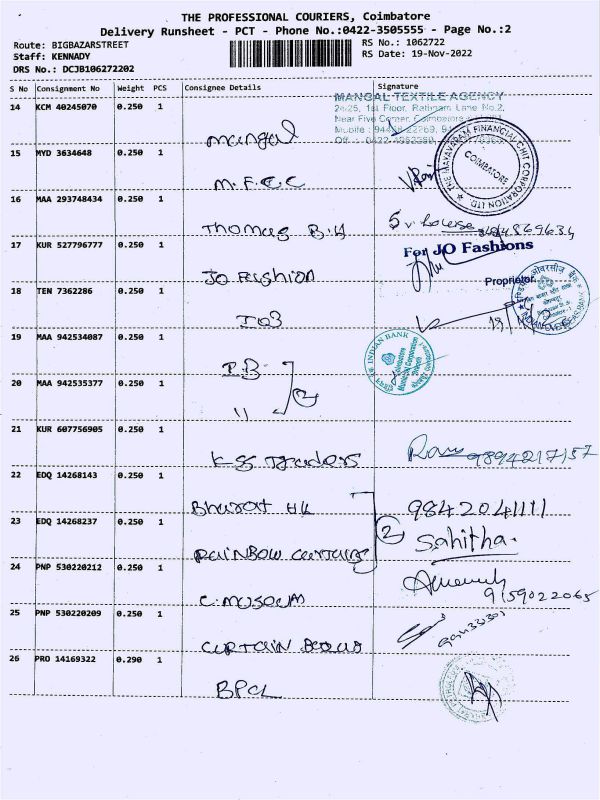 THE PROFESSIONAL COURIERS, Coimbatore
Delivery Runsheet - PCT - Phone No.:0422-3505555 - Page No.:2
Route: BIGBAZARSTREET
Staff: KENNADY
DRS No.: DCJB106272202
RS No.: 1062722
RS Date: 19-Nov-2022
S No Consignment No Weight PCS Consignee Details Signature
14 KCM 40245070 0.250 1 mangal
MANGAL TEXTILE AGENCY
24-25, 1st Floor, Rathnam Lane No.2,
Near Five Corner, Coimbatore
Mobile
15 MYD 3634648 0.250 1 M.F.C.C
THE MAYAVARAM FINANCIAL CHIT CORPORATION LTD.
COIMBATORE
16 MAA 293748434 0.250 1 Thomas B.H
17 KUR 527796777 0.250 1 Jo Fashion
For JO Fashions
Proprietor
18 TEN 7362286 0.250 1 IOB
INDIAN OVERSEAS BANK
19 MAA 942534087 0.250 1 I.B
INDIAN BANK
Coimbatore
Municipal Corporation
20 MAA 942535377 0.250 1 11 2
21 KUR 607756905 0.250 1 KSS Traders
9894217157
22 EDQ 14268143 0.250 1 Bharat HL
9842041111
23 EDQ 14268237 0.250 1 RAINBOW curtains 2
Sahitha.
24 PNP 530220212 0.250 1 C. MUSEUM
9159022065
25 PNP 530220209 0.250 1 CURTAIN
26 PRO 14169322 0.290 1 BPCL